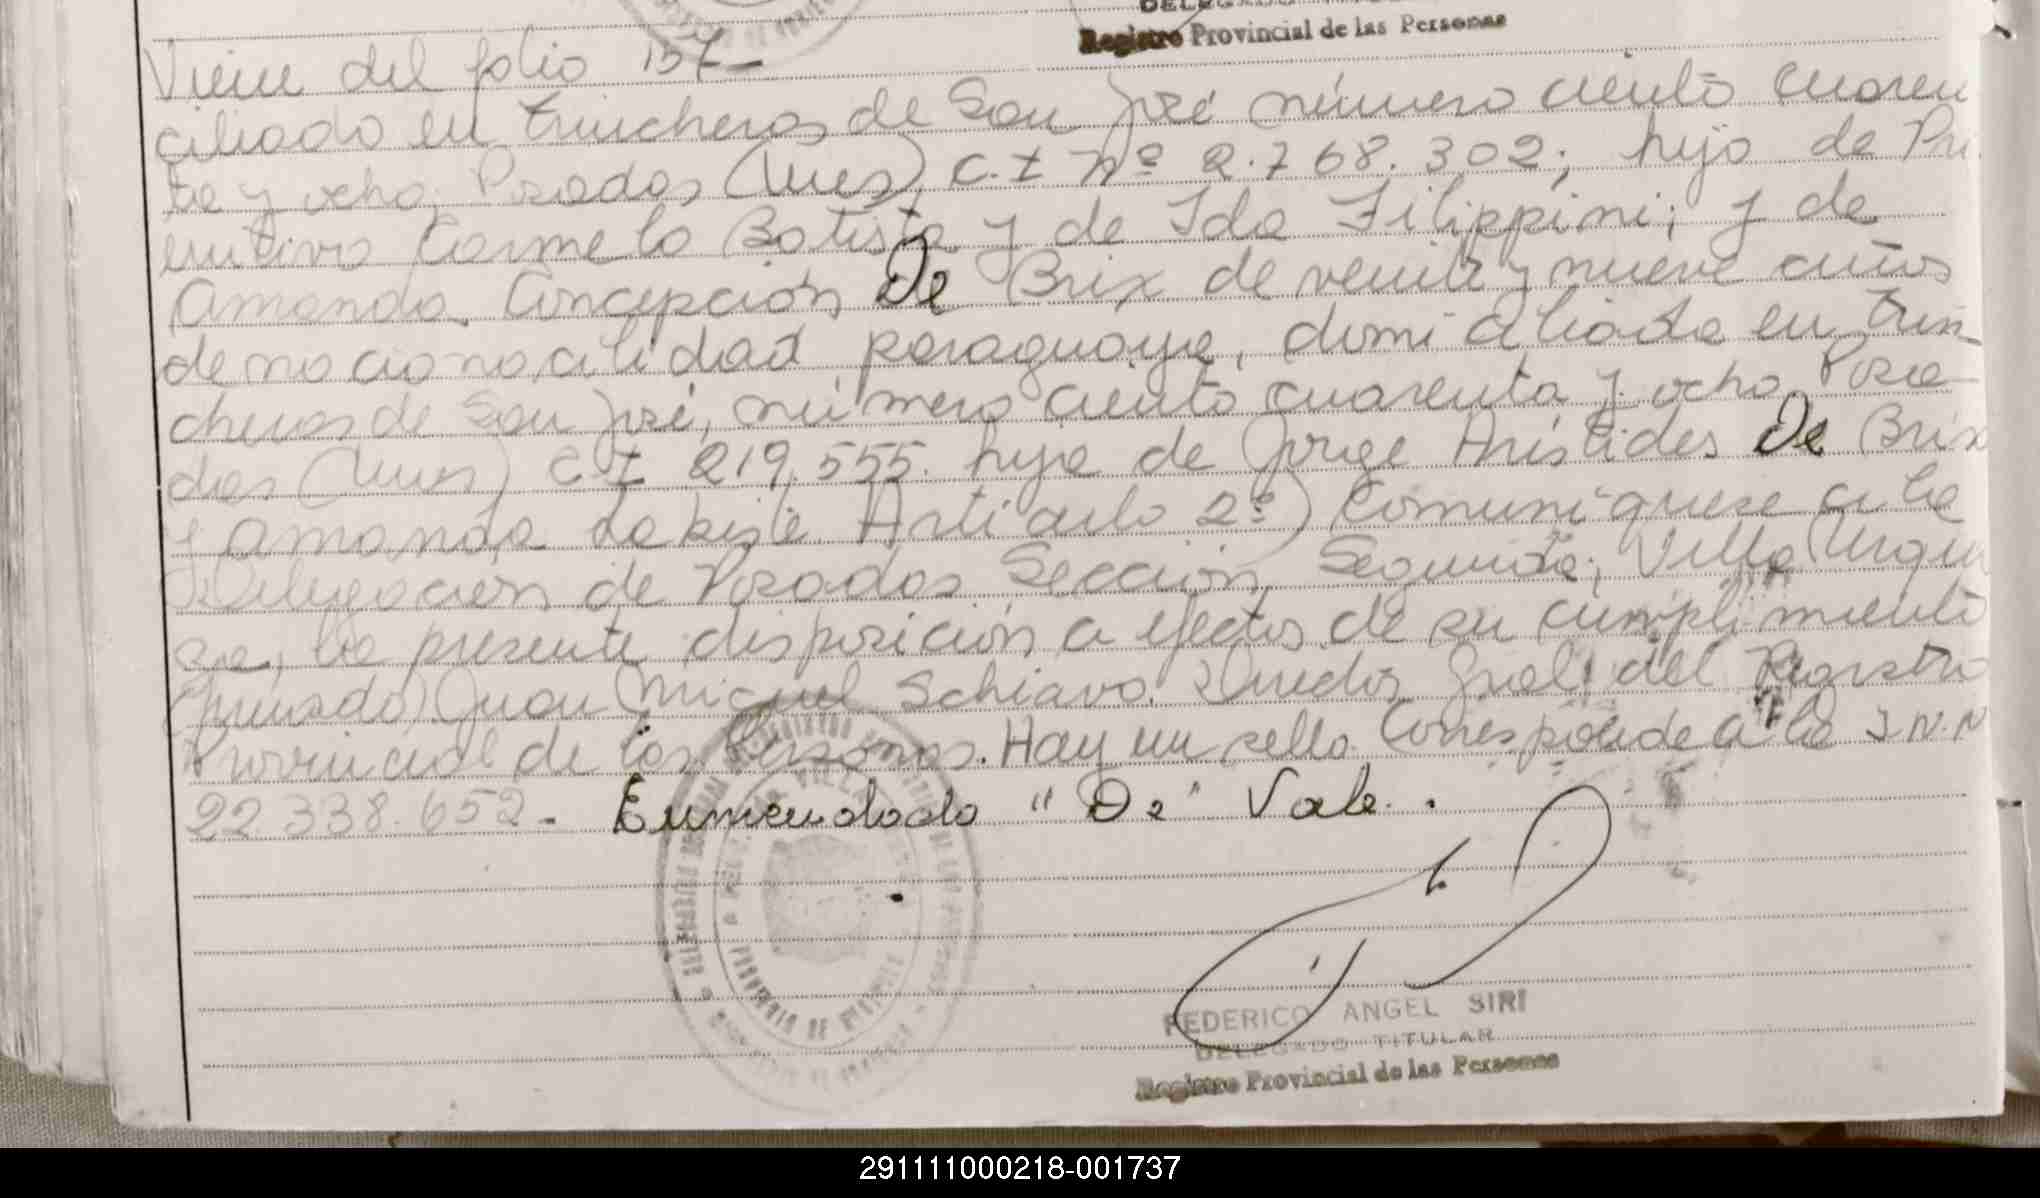 Registro Provincial de las Personas
Viene del folio 157-
ciliado en trincheras de San José número ciento cuaren
ta y ocho, Posadas (Mnes) C.I Nº 2.768.302; hijo de Pri
mitivo Carmelo Batista y de Ida Filippini; y de
Amanda Concepción De Brix de veinte y nueve años
de nacionalidad paraguaya, domiciliada en trin
cheras de San José, número ciento cuarenta y ocho Posa
das (Mnes) C.I 219.555. hija de Jorge Arístides De Brix
y Amanda Artículo 2º) Comuníquese a la
Delegación de Posadas Sección Segunda, Villa Urqui
za, la presente disposición a efectos de su cumplimiento
(firmado) Juan Miguel Schiavo. Director Gral. del Registro
Provincial de las Personas. Hay un sello. Corresponde a la I.N.N
22.338.652.- Enmendado "De" Vale.
PROVINCIA DE MISIONES
FEDERICO ANGEL SIRI
DELEGADO TITULAR
Registro Provincial de las Personas
291111000218-001737